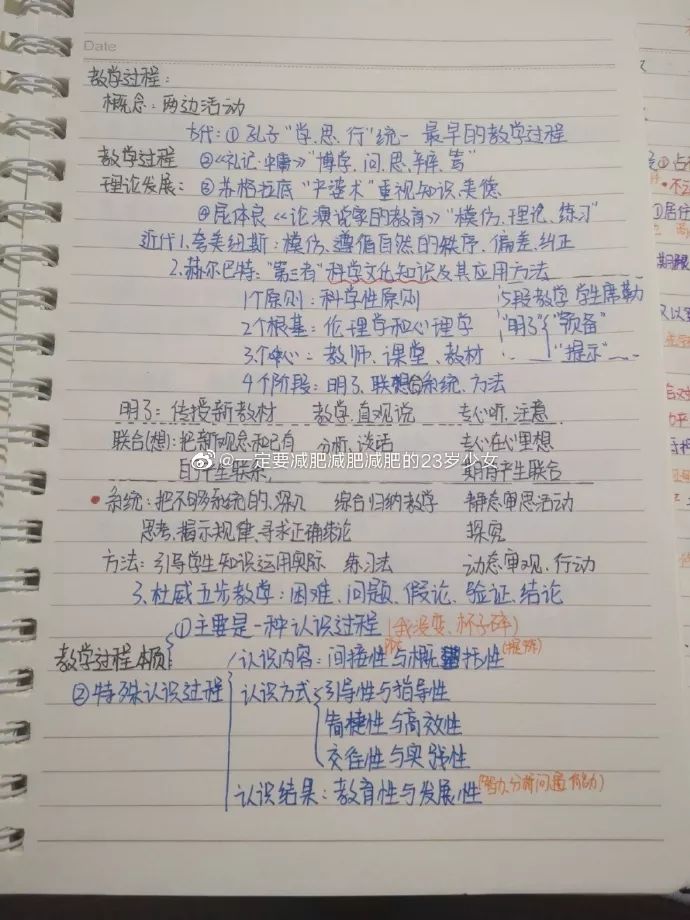 Date
教学过程:
概念:两边活动
古代:①孔子"学、思、行"统一 最早的教学过程
教学过程 ②《礼记·中庸》"博学、问、思、辨、笃"
理论发展:③苏格拉底"产婆术"重视知识、美德
④昆体良《论演说家的教育》"模仿、理论、练习"
近代1.夸美纽斯:模仿、遵循自然的秩序、偏差、纠正
2.赫尔巴特:"第三者"科学文化知识及其应用方法
1个原则:科学性原则 5段教学 学生席勒
2个根基:伦理学和心理学 "明了"{"预备"
3个中心:教师、课堂、教材 "提示"
4个阶段:明了、联想、系统、方法
明了:传授新教材 教学、直观说 专心听、注意
联合(想):把新观念和已有 分析、谈话 专心在心里想
的产生联系, 期待产生联合
@一定要减肥减肥减肥的23岁少女
系统:把不够系统的、深入 综合归纳教学 静态审思活动
思考、揭示规律、寻求正确结论 探究
方法:引导学生知识运用实际 练习法 动态审观、行动
3.杜威五步教学:困难、问题、假设、验证、结论
①主要是一种认识过程(我没变、杯子碎)
教学过程本质 认识内容:间接性与概括性
②特殊认识过程 认识方式 引导性与指导性
简捷性与高效性
交往性与实践性
认识结果:教育性与发展性